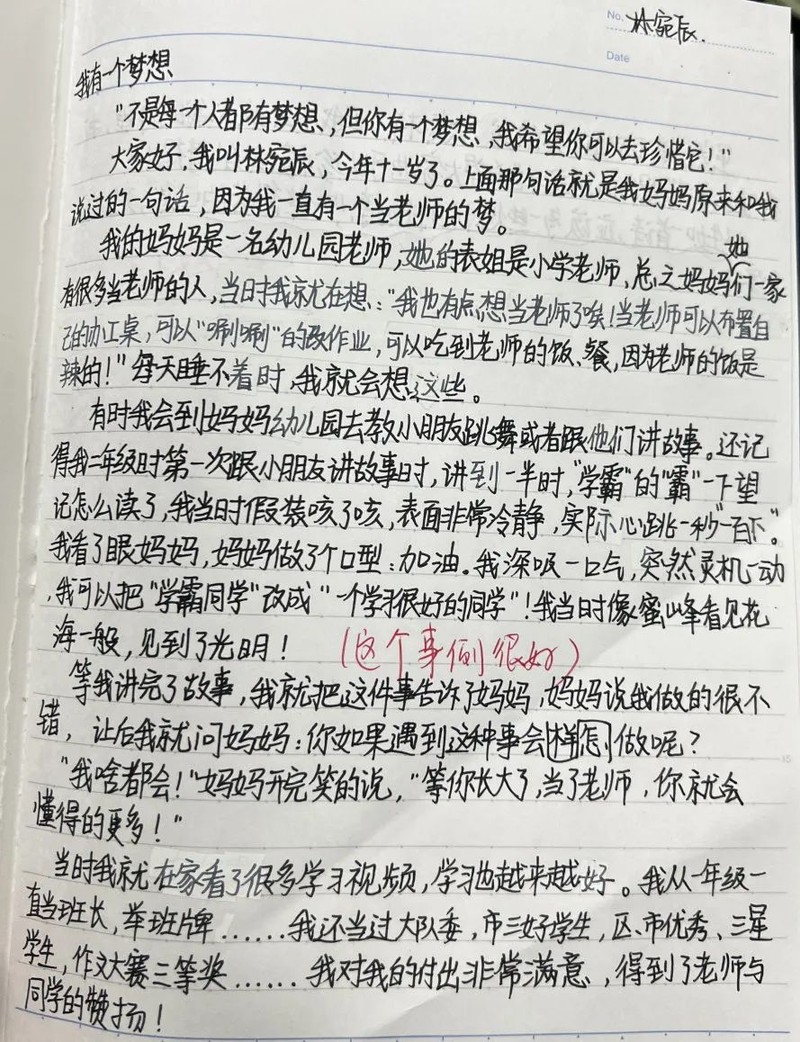 No. 林宛辰.
Date
我有一个梦想
"不是每一个人都有梦想,但你有一个梦想,我希望你可以去珍惜它!"
大家好,我叫林宛辰,今年十一岁了。上面那句话就是我妈妈原来和我
说过的一句话,因为我一直有一个当老师的梦。
我的妈妈是一名幼儿园老师,她的表姐是小学老师,总之妈妈她们一家
有很多当老师的人,当时我就在想:"我也有点想当老师了唉!当老师可以布置自
己的办工桌,可以"唰唰"的改作业,可以吃到老师的饭、餐,因为老师的饭是
辣的!"每天睡不着时,我就会想这些。
有时我会到妈妈幼儿园去教小朋友跳舞或者跟他们讲故事。还记
得我二年级时第一次跟小朋友讲故事时,讲到一半时,"学霸"的"霸"一下望
记怎么读了,我当时假装咳了咳,表面非常冷静,实际心跳一秒"百下"。
我看了眼妈妈,妈妈做了个口型:加油。我深吸一口气,突然灵机一动
,我可以把"学霸同学"改成"一个学习很好的同学"!我当时像蜜峰看见花
海一般,见到了光明!(这个事例很好)
等我讲完了故事,我就把这件事告诉了妈妈,妈妈说我做的很不
错,让后我就问妈妈:你如果遇到这种事会样怎做呢?
"我啥都会!"妈妈开完笑的说,"等你长大了,当了老师,你就会
懂得的更多!"
当时我就在家看了很多学习视频,学习也越来越好。我从一年级一
直当班长,举班牌……我还当过大队委,市三好学生,区、市优秀、三星
学生,作文大赛三等奖……我对我的付出非常满意,得到了老师与
同学的赞扬!